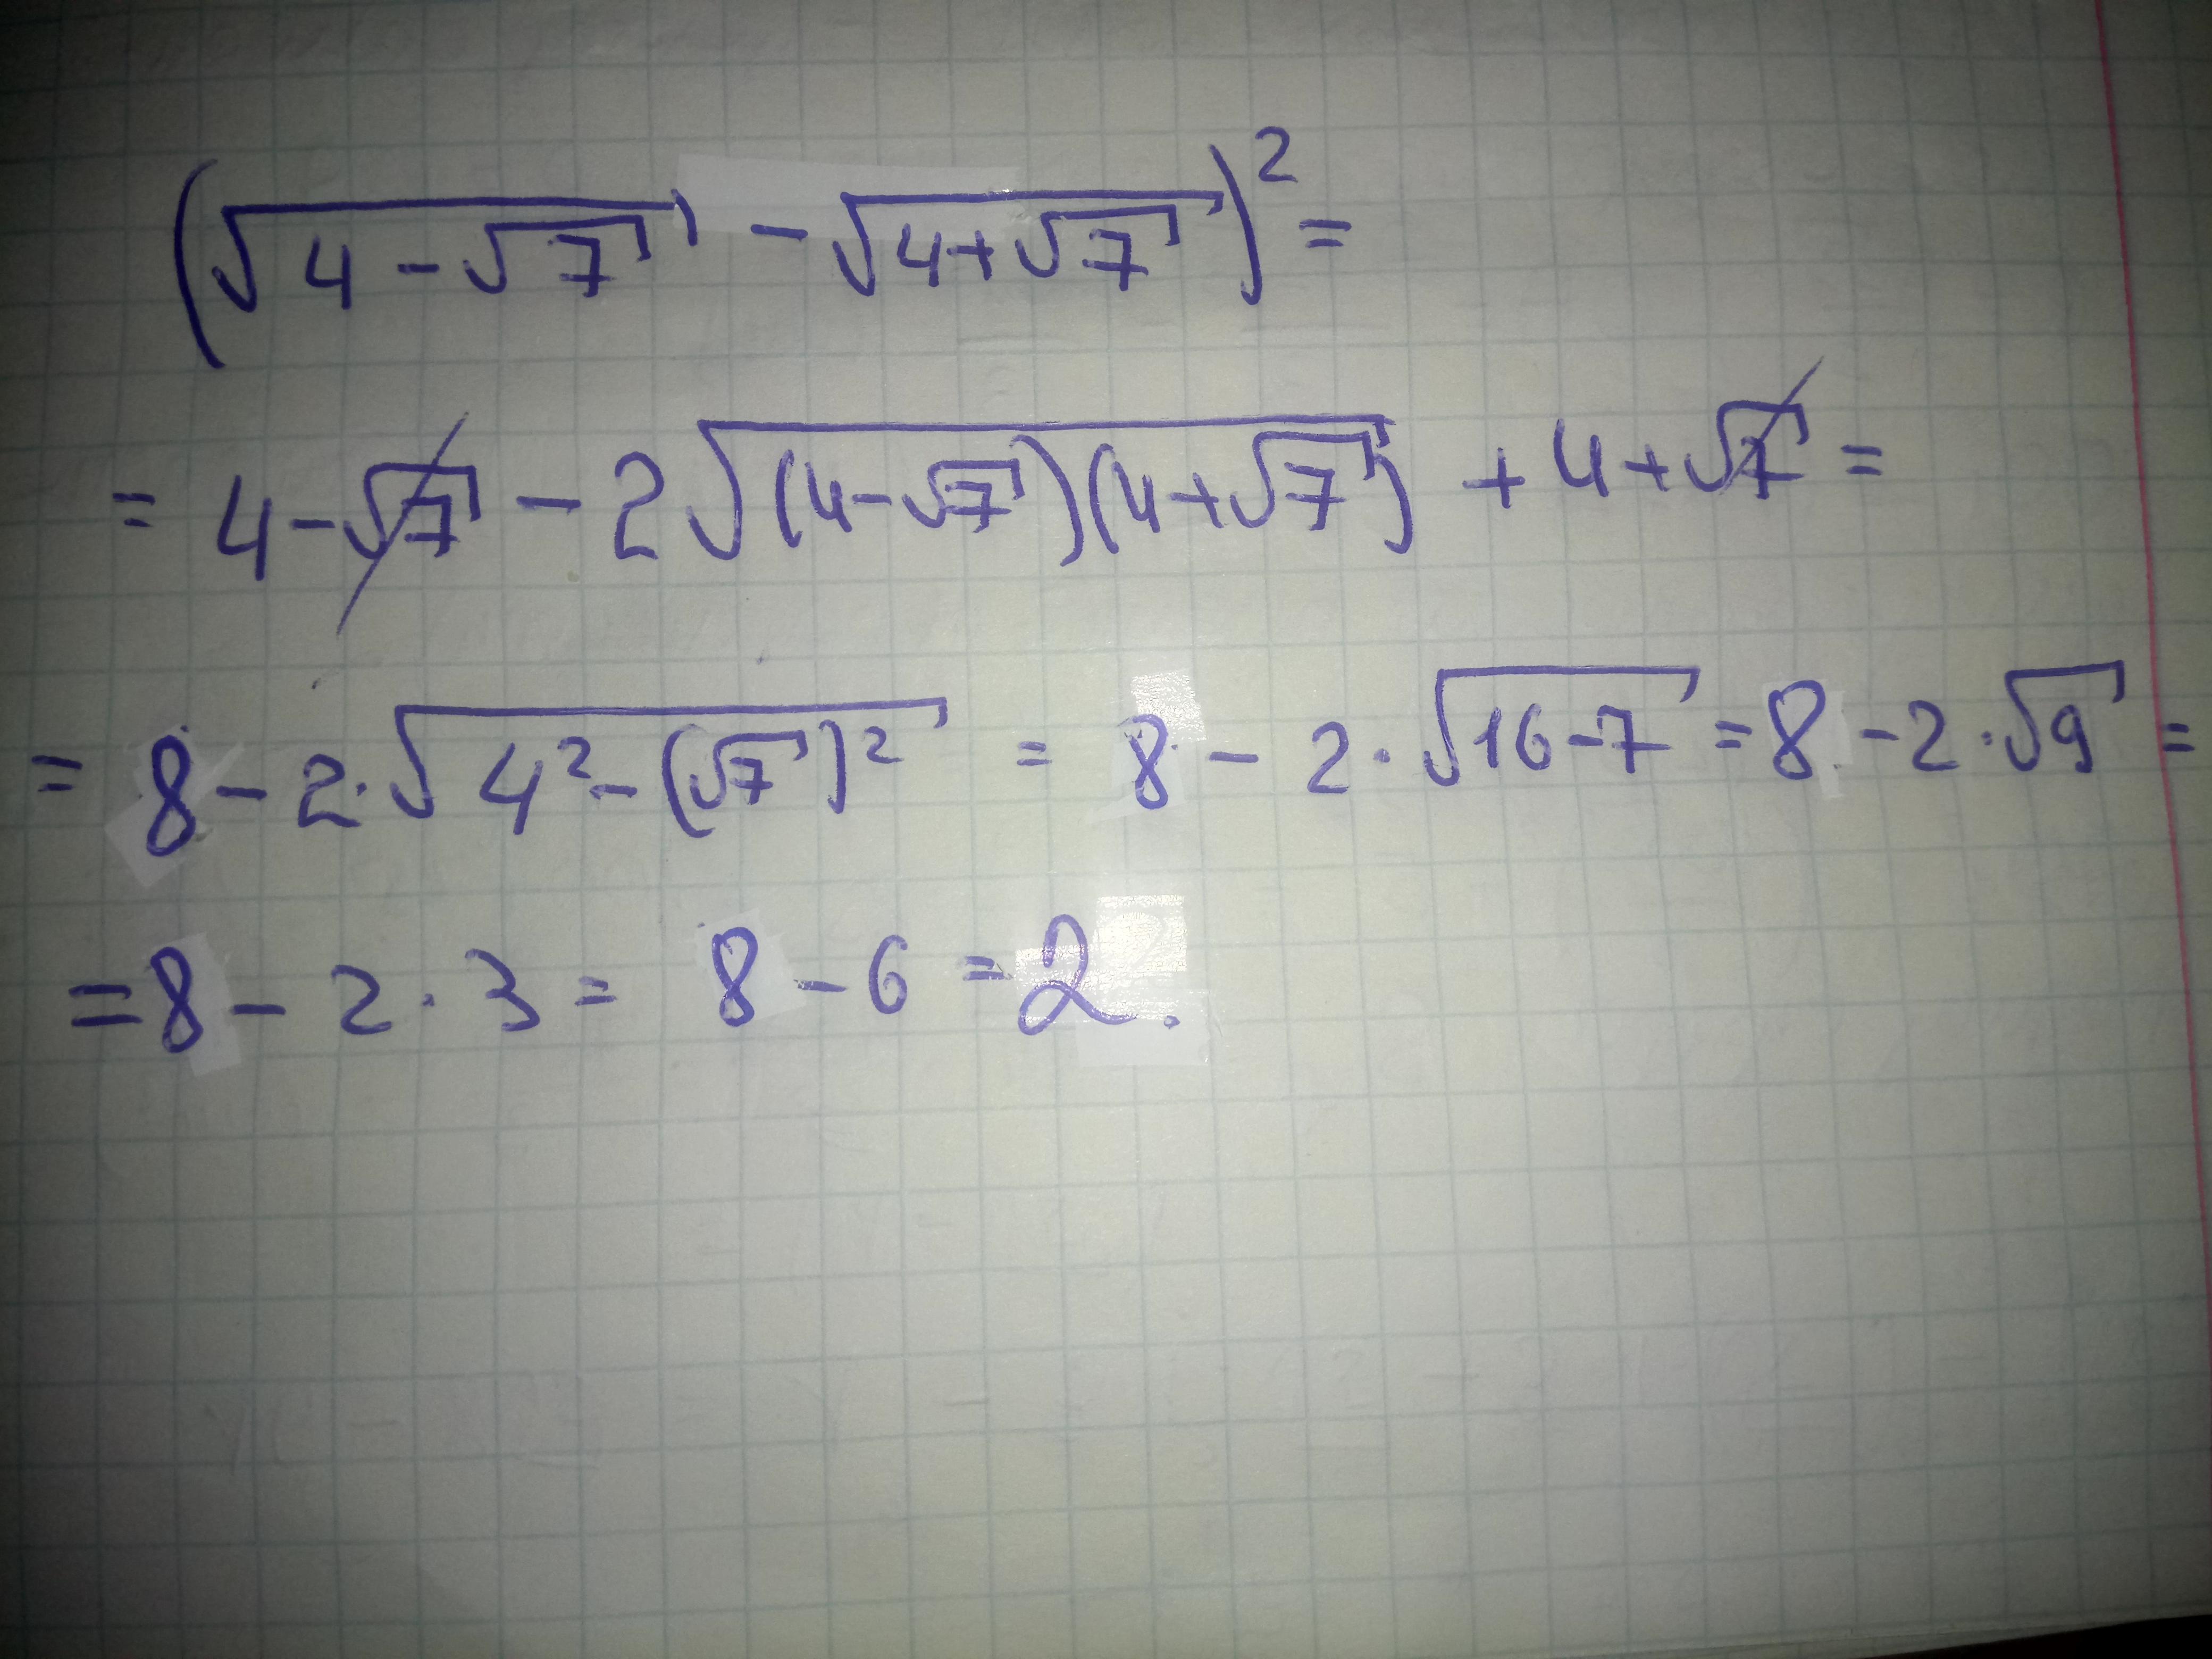 (√(4-√7) - √(4+√7))² =
= 4-√7 - 2√((4-√7)(4+√7)) + 4+√7 =
= 8 - 2·√(4²-(√7)²) = 8 - 2·√(16-7) = 8 - 2·√9 =
= 8 - 2·3 = 8 - 6 = 2.